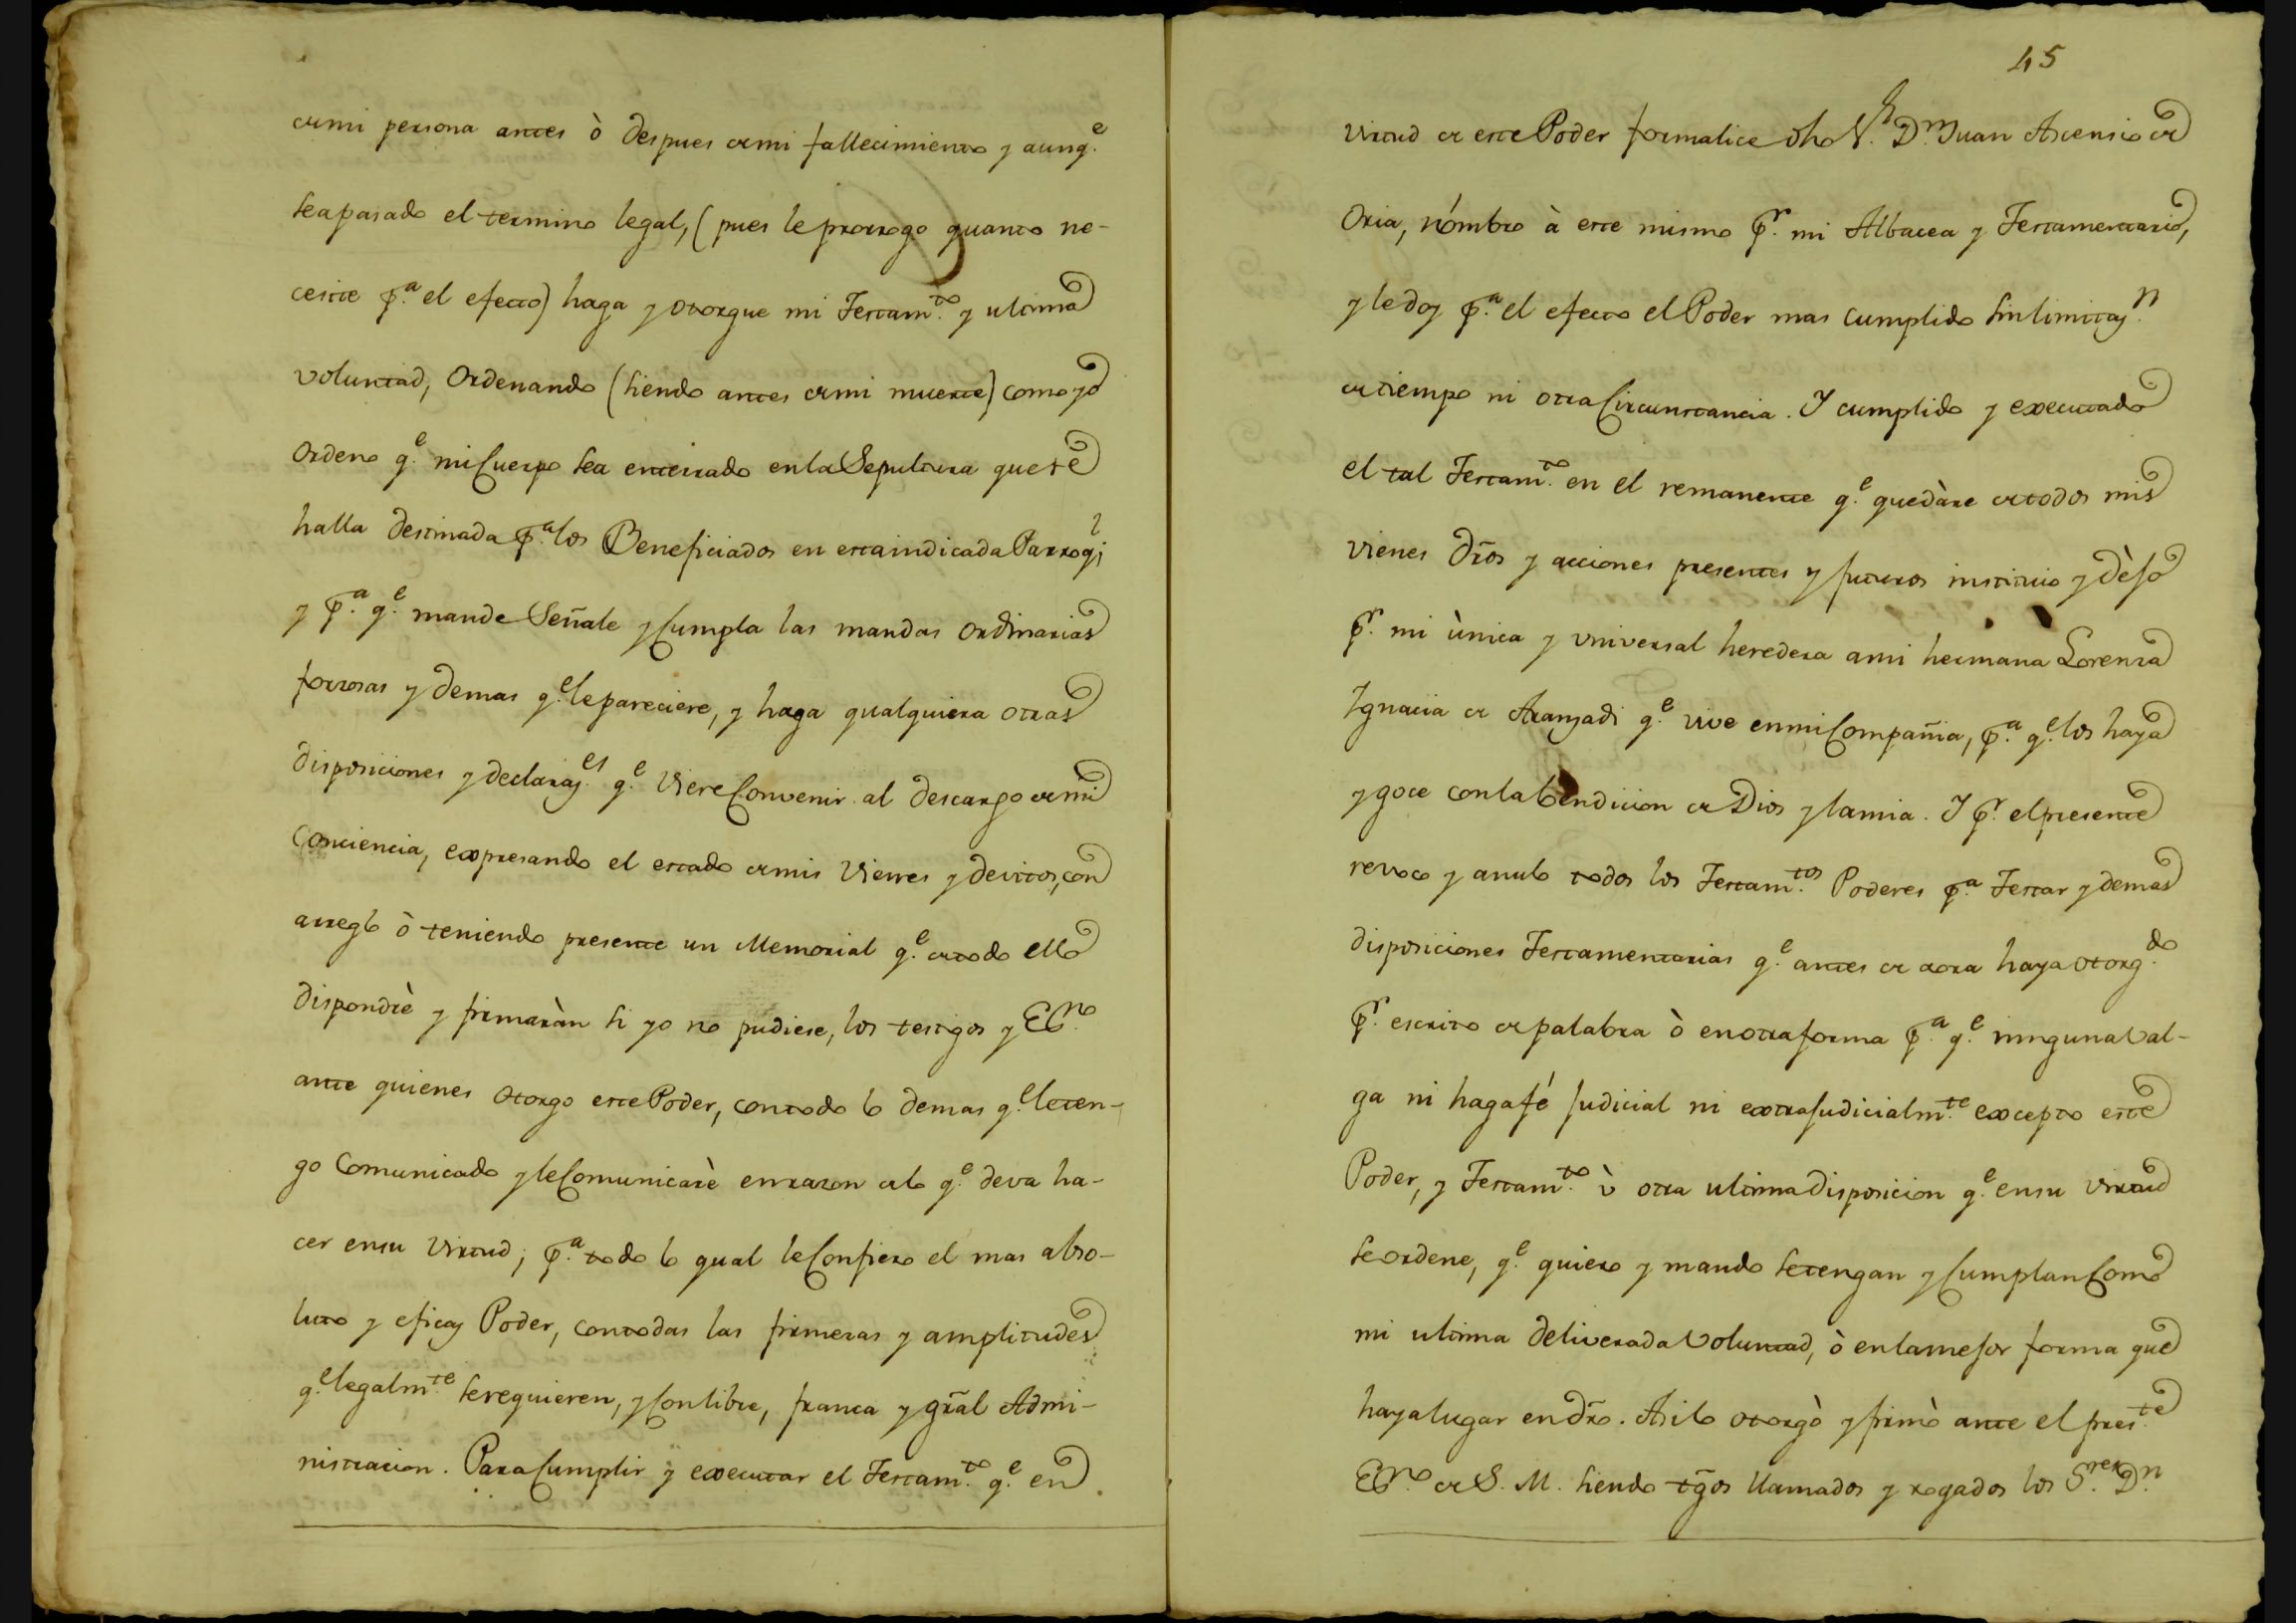 de mi persona antes ò despues de mi fallecimiento y aunq.e
sea pasado el termino legal, (pues le prorrogo quanto ne-
cesite p.a el efecto) haga y otorgue mi Testam.to y ultima
voluntad, Ordenando (siendo antes de mi muerte) como yo
Ordeno q.e mi Cuerpo sea enterrado en la Sepultura que se
halla destinada p.a los Beneficiados en esta indicada Parroq.l
y p.a q.e mande Señale y Cumpla las mandas Ordinarias
forzosas y demas q.e le pareciere, y haga qualquiera otras
disposiciones y declaraz.es q.e Viere Convenir al descargo de mi
Conciencia, expresando el estado de mis Vienes y devitos, con
arreglo ò teniendo presente un Memorial q.e de todo ello
dispondrè y firmaràn si yo no pudiese, los testigos y Es.no
ante quienes otorgo este Poder, con todo lo demas q.e le ten-
go Comunicado y le Comunicarè en razon de lo q.e deva ha-
cer en su Virtud; p.a todo lo qual le Confiero el mas abso-
luto y eficaz Poder, con todas las firmezas y amplitudes
q.e legalm.te se requieren, y Con libre, franca y gral Admi-
nistracion. Para Cumplir y executar el Testam.to q.e en
45
virtud de este Poder formalice dho S.r D.n Juan Ascensio de
Oria, nómbro à este mismo p.r mi Albacea y Testamentario,
y le doy p.a el efecto el Poder mas Cumplido sin limitaz.n
de tiempo ni otra Circunstancia. Y cumplido y executado
el tal Testam.to en el remanente q.e quedàre de todos mis
vienes dros y acciones presentes y futuros instituio y dèjo
p.r mi ùnica y vniversal heredera a mi hermana Lorenza
Ignacia de Aranzadi q.e vive en mi Compañia, p.a q.e los haya
y goce con la bendicion de Dios y la mia. Y p.r el presente
revoco y anulo todos los Testam.tos Poderes p.a Testar y demas
disposiciones Testamentarias q.e antes de aora haya otorg.do
p.r escrito de palabra ò en otra forma p.a q.e ninguna Val-
ga ni haga fé Judicial ni extraJudicialm.te excepto este
Poder, y Testam.to ù otra ultima disposicion q.e en su virtud
se ordene, q.e quiero y mando se tengan y Cumplan Como
mi ultima deliverada Voluntad, ò en la mejor forma que
haya lugar en dro. Asi lo otorgò y firmò ante el pres.te
Es.no de S. M. siendo tgos llamados y rogados los S.res D.n